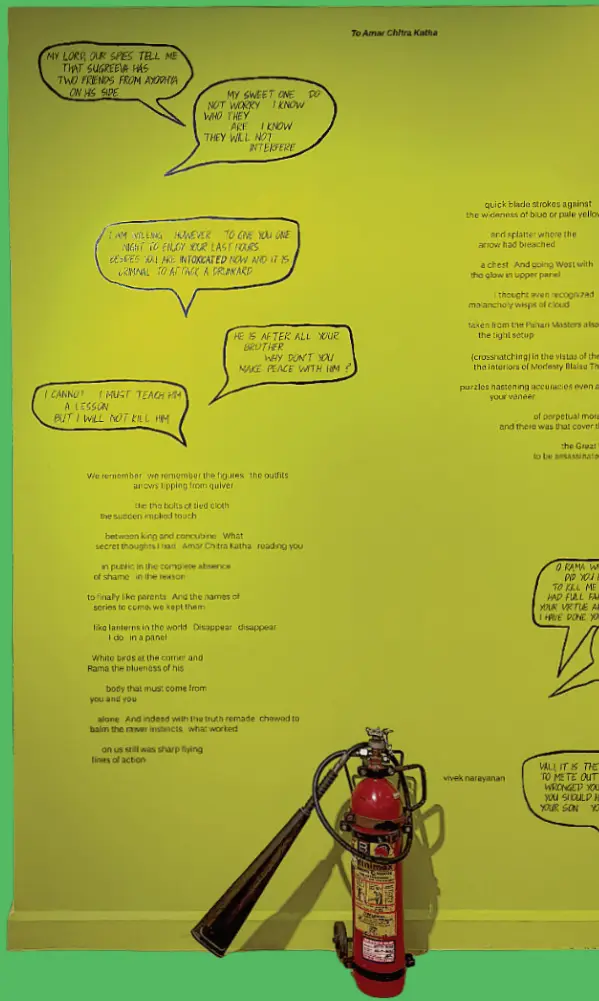 To Amar Chitra Katha
MY LORD, OUR SPIES TELL ME
THAT SUGREEVA HAS
TWO FRIENDS FROM AYODHYA
ON HIS SIDE
MY SWEET ONE DO
NOT WORRY I KNOW
WHO THEY
ARE I KNOW
THEY WILL NOT
INTERFERE
I AM WILLING HOWEVER TO GIVE YOU ONE
NIGHT TO ENJOY YOUR LAST HOURS
BESIDES YOU ARE INTOXICATED NOW AND IT IS
CRIMINAL TO ATTACK A DRUNKARD
HE IS AFTER ALL YOUR
BROTHER
WHY DON'T YOU
MAKE PEACE WITH HIM ?
I CANNOT I MUST TEACH HIM
A LESSON
BUT I WILL NOT KILL HIM
We remember we remember the figures the outfits
arrows tipping from quiver
the the bolts of tied cloth
the sudden implied touch
between king and concubine What
secret thoughts I had Amar Chitra Katha reading you
in public in the complete absence
of shame in the reason
to finally like parents And the names of
series to come we kept them
like lanterns in the world Disappear disappear
I do in a panel
White birds at the corner and
Rama the blueness of his
body that must come from
you and you
alone And indeed with the truth remade chewed to
balm the lower instincts what worked
on us still was sharp flying
lines of action
quick blade strokes against
the wideness of blue or pale yellow
and splatter where the
arrow had breached
a chest And going West with
the glow in upper panel
I thought even recognized
melancholy wisps of cloud
taken from the Pahari Masters also
the tight setup
(crosshatching) in the vistas of the
the interiors of Modesty Blaise Th
puzzles hastening accuracies even a
your veneer
of perpetual mora
and there was that cover th
the Great
to be assassinate
O RAMA W
DID YOU
TO KILL ME
HAD FULL FA
YOUR VIRTUE A
I HAVE DONE YO
VALI, IT IS THE
TO METE OUT
WRONGED YOU
YOU SHOULD H
YOUR SON YO
vivek narayanan